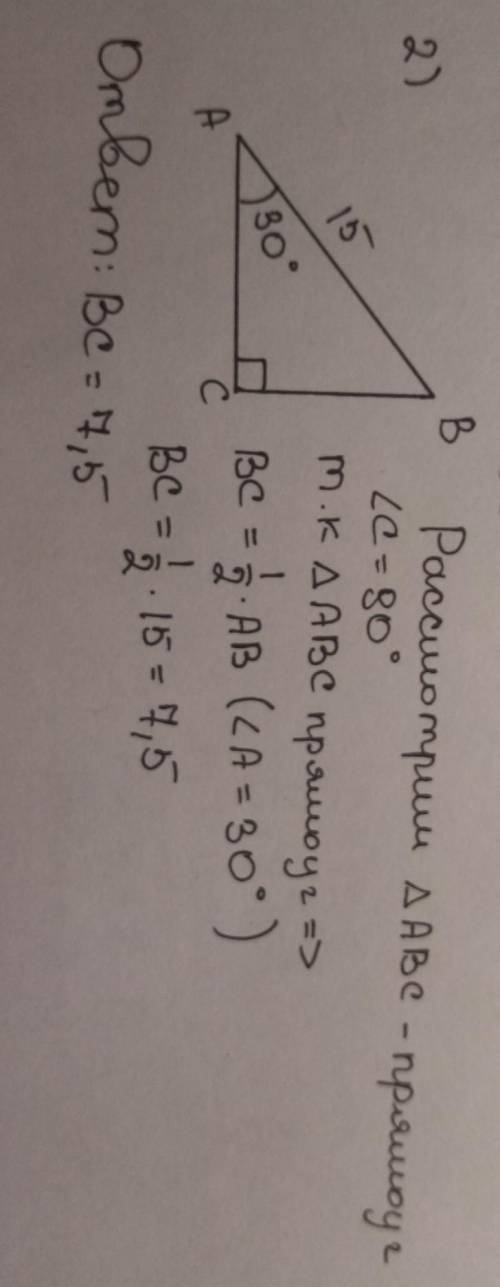 2)
A
15
30°
B
C
Рассмотрим △ABC - прямоуг
∠C = 90°
т.к △ABC прямоуг =>
BC = 1/2 · AB (∠A = 30°)
BC = 1/2 · 15 = 7,5
Ответ: BC = 7,5